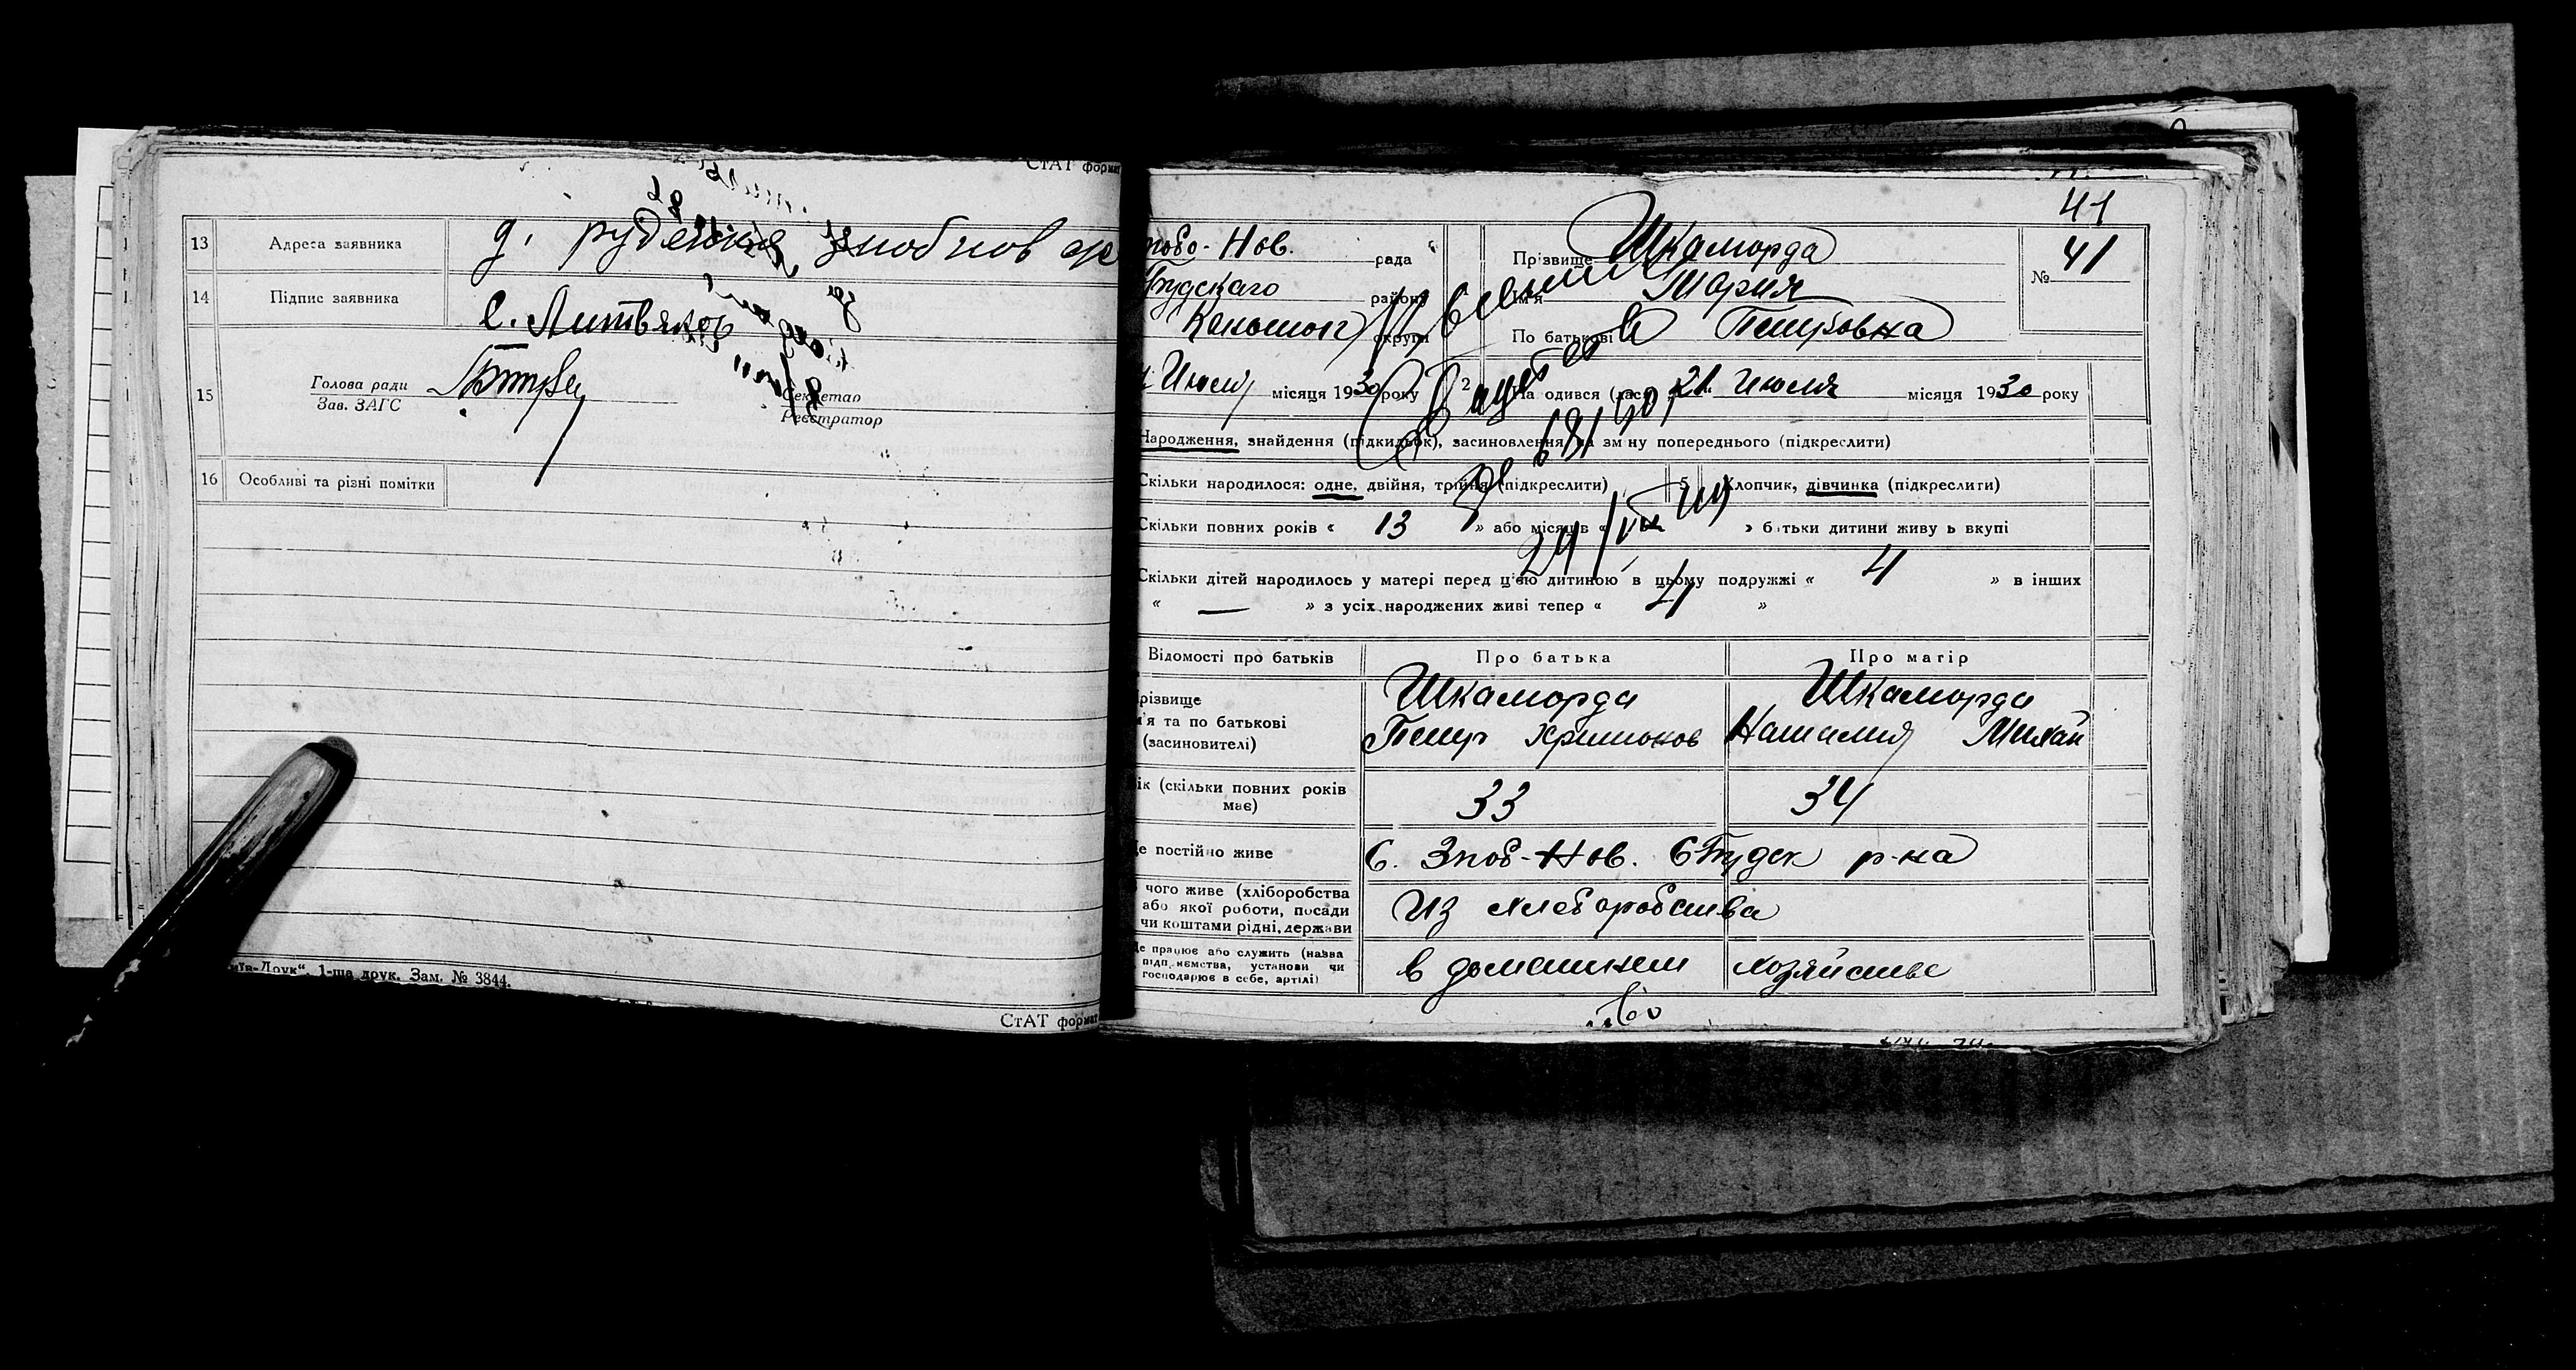 СтАТ формат
13 Адреса заявника д. рудення зноб нов
14 Підпис заявника С. Литвяков
15 Голова ради
Зав. ЗАГС
Секретар
Реєстратор
16 Особливі та різні помітки
1-ша друк. Зам. № 3844.
СтАТ формат
41
Нов. рада
Прізвище Шкаморда
№ 41
будскаго району
Ім'я Мария
округи
По батькові Петровна
Июля місяця 1930 року
2
одився 21 Июля місяця 1930 року
Народження, знайдення (підкидьок), засиновлення на зміну попереднього (підкреслити)
Скільки народилося: одне, двійня, трійня (підкреслити)
5 Хлопчик, дівчинка (підкреслити)
Скільки повних років « 13 » або місяців « » батьки дитини живуть вкупі
Скільки дітей народилось у матері перед цією дитиною в цьому подружжі « 4 » в інших
« — » з усіх народжених живі тепер « 4 »
Відомості про батьків Про батька Про матір
різвище Шкаморда Шкаморда
м'я та по батькові Петр Наталия
(засиновителі)
ік (скільки повних років має) 33 34
е постійно живе С. Зноб-Нов. СБудск р-на
чого живе (хліборобства
або якої роботи, посади
чи коштами рідні, держави
Из хлеборобства
е працює або служить (назва
підприємства, установи чи
господарює в себе, артілі)
в домашнем хозяйстве